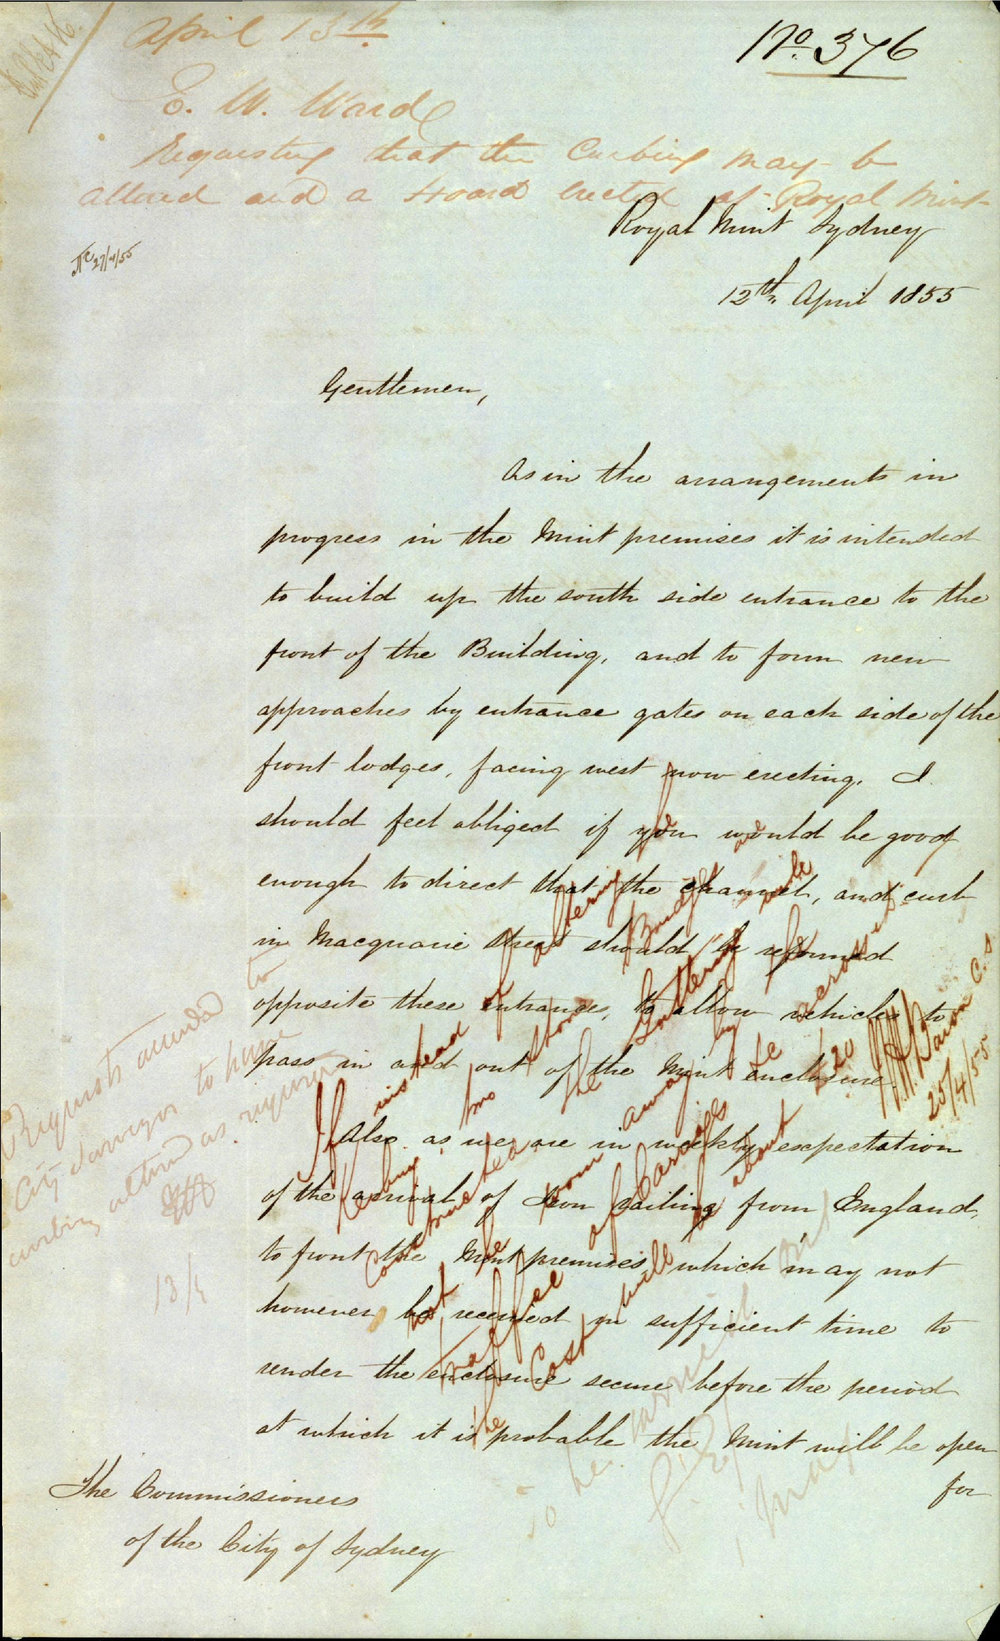 April 13th
No. 376
E. W. Ward
Requesting that the Curbing may be
altered and a Hoard erected at Royal Mint
Royal Mint Sydney
27/4/55
12th April 1855
Gentlemen,
As in the arrangements in
progress in the Mint premises it is intended
to build up the south side entrance to the
front of the Building, and to form new
approaches by entrance gates on each side of the
front lodges, facing west now erecting, I
should feel obliged if you would be good
enough to direct that the channel, and curb
in Macquarie Street should be reformed
opposite these entrances, to allow vehicles to
pass in and out of the Mint enclosure.
Also, as we are in weekly expectation
of the arrival of Iron railing from England,
to front the Mint premises, which may not
however be received in sufficient time to
render the enclosure secure before the period
at which it is probable the Mint will be open
for
The Commissioners
of the City of Sydney
Request acceded to
City Surveyor to have
curbing altered as required
13/4
If instead of altering the
Kerbing, two stone Bridges are
constructed the Guttering will
not be worn away by the
traffic of Carriages across it
the Cost will be about £20
25/4/55
to be
May